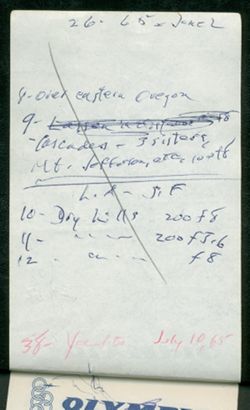 26 - 65 - June 2
4- over eastern Oregon
9-
- Cascades - 3 sisters,
Mt. Jefferson,
L.A - S.F
10 - Dry hills 200 f8
11 - " " 200 f5.6
12 " " f8
38- July 10, 65
OLYMP